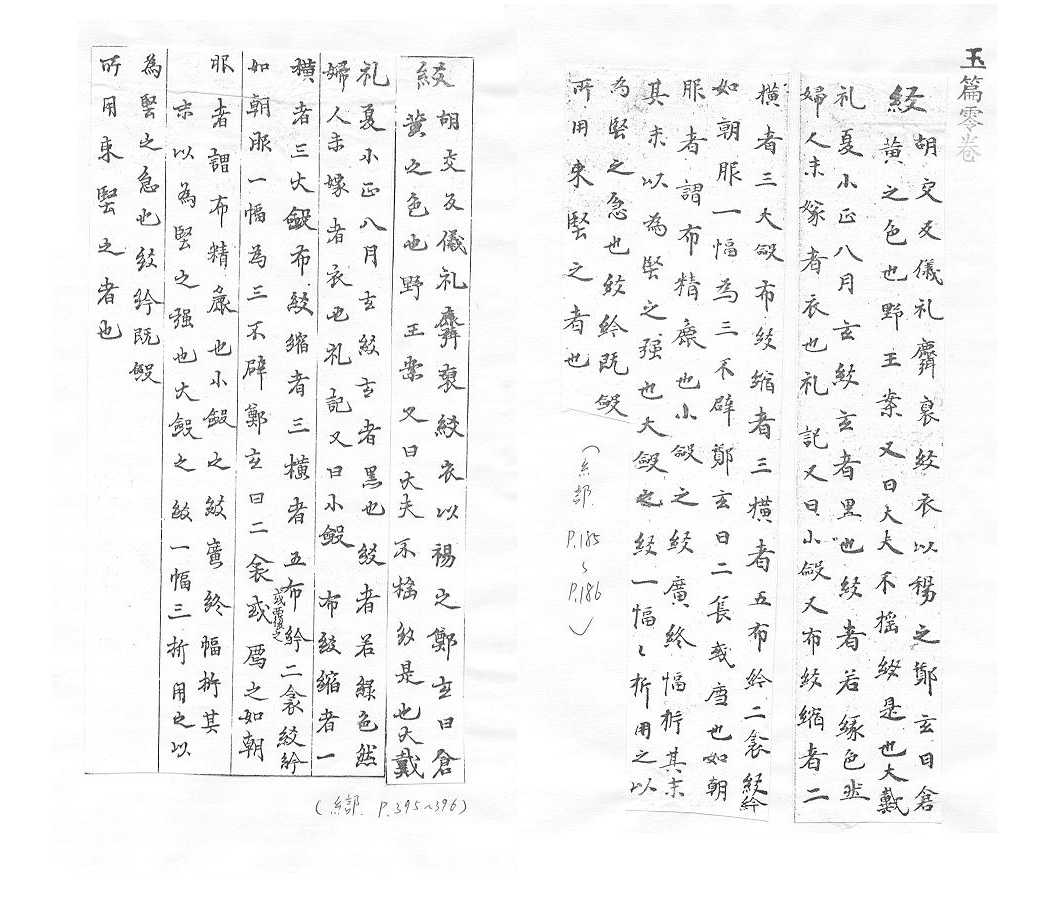 玉篇零卷
絞 胡交反儀礼齊裒絞衣以裼之鄭玄曰倉
黃之色也野王案又曰大夫不揺絞是也大戴
礼夏小正八月玄絞玄者黑也絞者若緑色然
婦人未嫁者衣也礼記又曰小斂又布絞縮者二
横者三大斂布絞縮者三横者五布紟二衾絞紟
如朝服一幅為三不辟鄭玄曰二衾或
也如朝
服者謂布精麁也小斂之絞廣終幅析其末
其末以為堅之强也大斂之絞一幅〻析用之以
為堅之急也絞紟既斂
所用束堅之者也
(糸部
P.185
~
P.186
)
絞 胡交反儀礼齊裒絞衣以裼之鄭玄曰倉
黃之色也野王案又曰大夫不揺絞是也大戴
礼夏小正八月玄絞玄者黑也絞者若緑色然
婦人未嫁者衣也礼記又曰小斂 布絞縮者一
横者三大斂布絞縮者三横者五布紟二衾絞紟
如朝服一幅為三不辟鄭玄曰二衾或
之如朝
服者謂布精麁也小斂之絞廣終幅析其
末以為堅之强也大斂之絞一幅三析用之以
為堅之急也絞紟既斂
所用束堅之者也
(糸部 P.395~396)